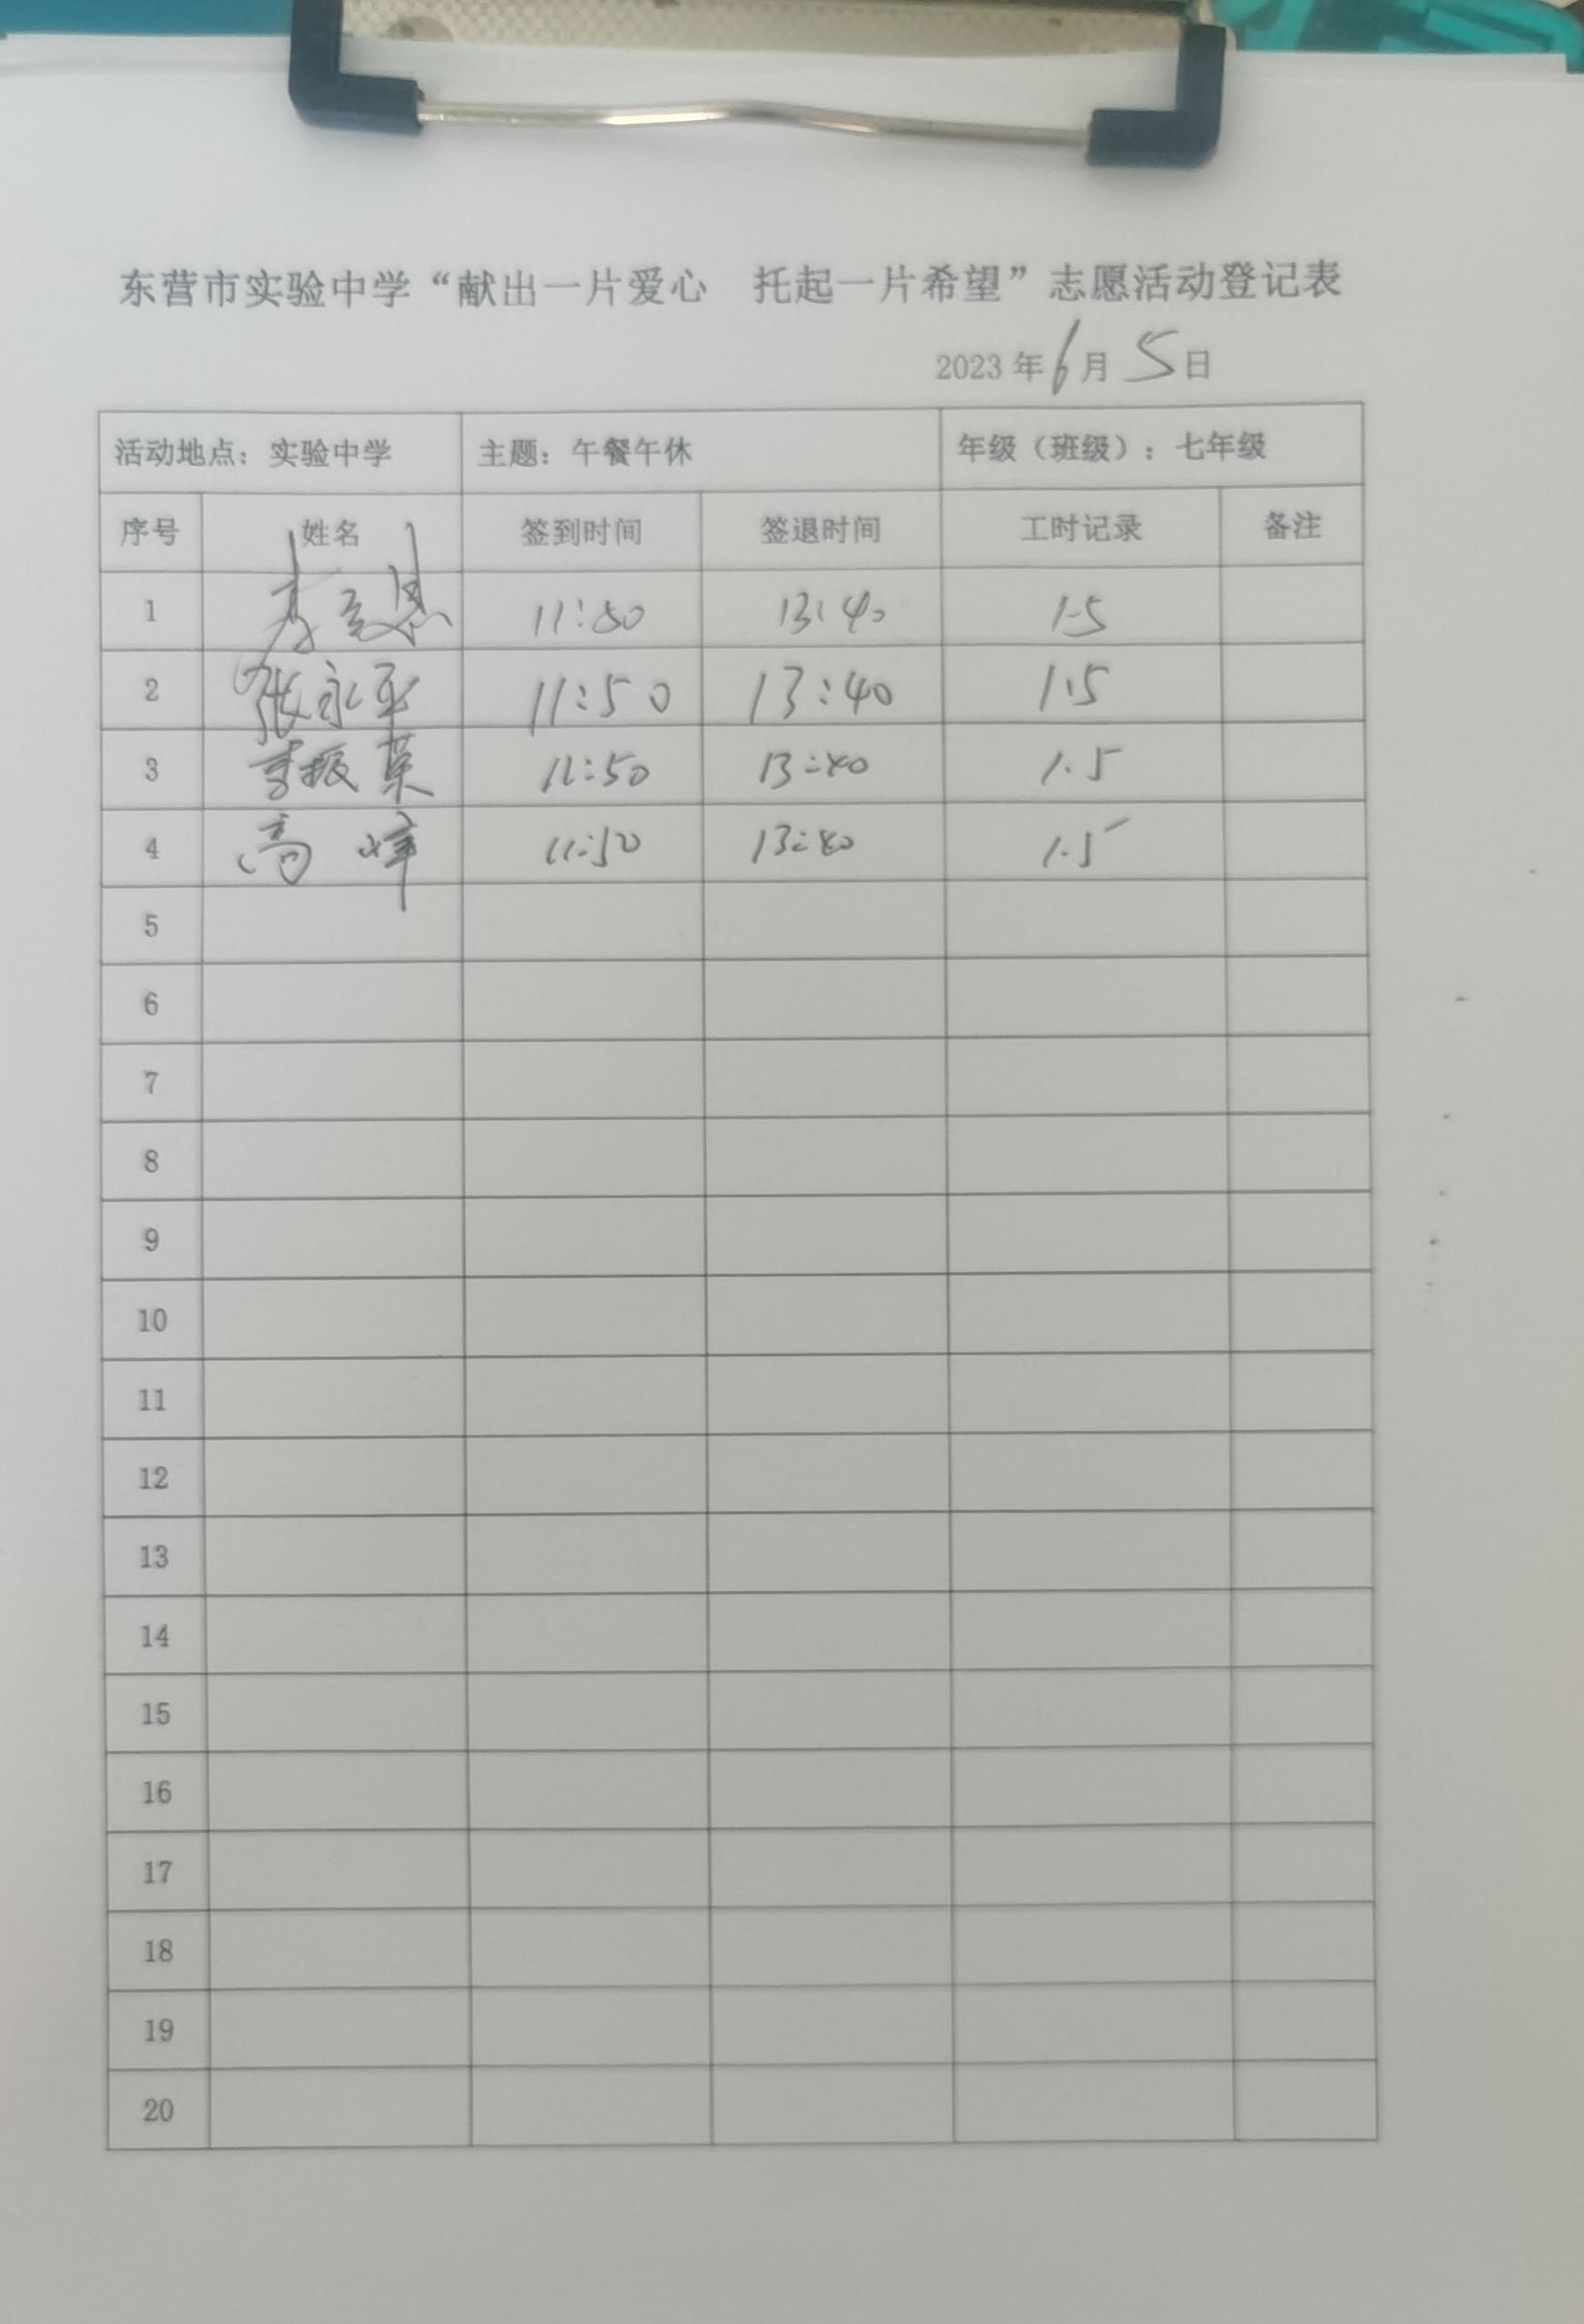 东营市实验中学“献出一片爱心 托起一片希望”志愿活动登记表
2023年6月5日
活动地点：实验中学 主题：午餐午休 年级（班级）：七年级
序号 姓名 签到时间 签退时间 工时记录 备注
1 李 11:50 13:40 1.5
2 张永平 11:50 13:40 1.5
3 李振英 11:50 13:40 1.5
4 高峰 11:50 13:40 1.5
5
6
7
8
9
10
11
12
13
14
15
16
17
18
19
20